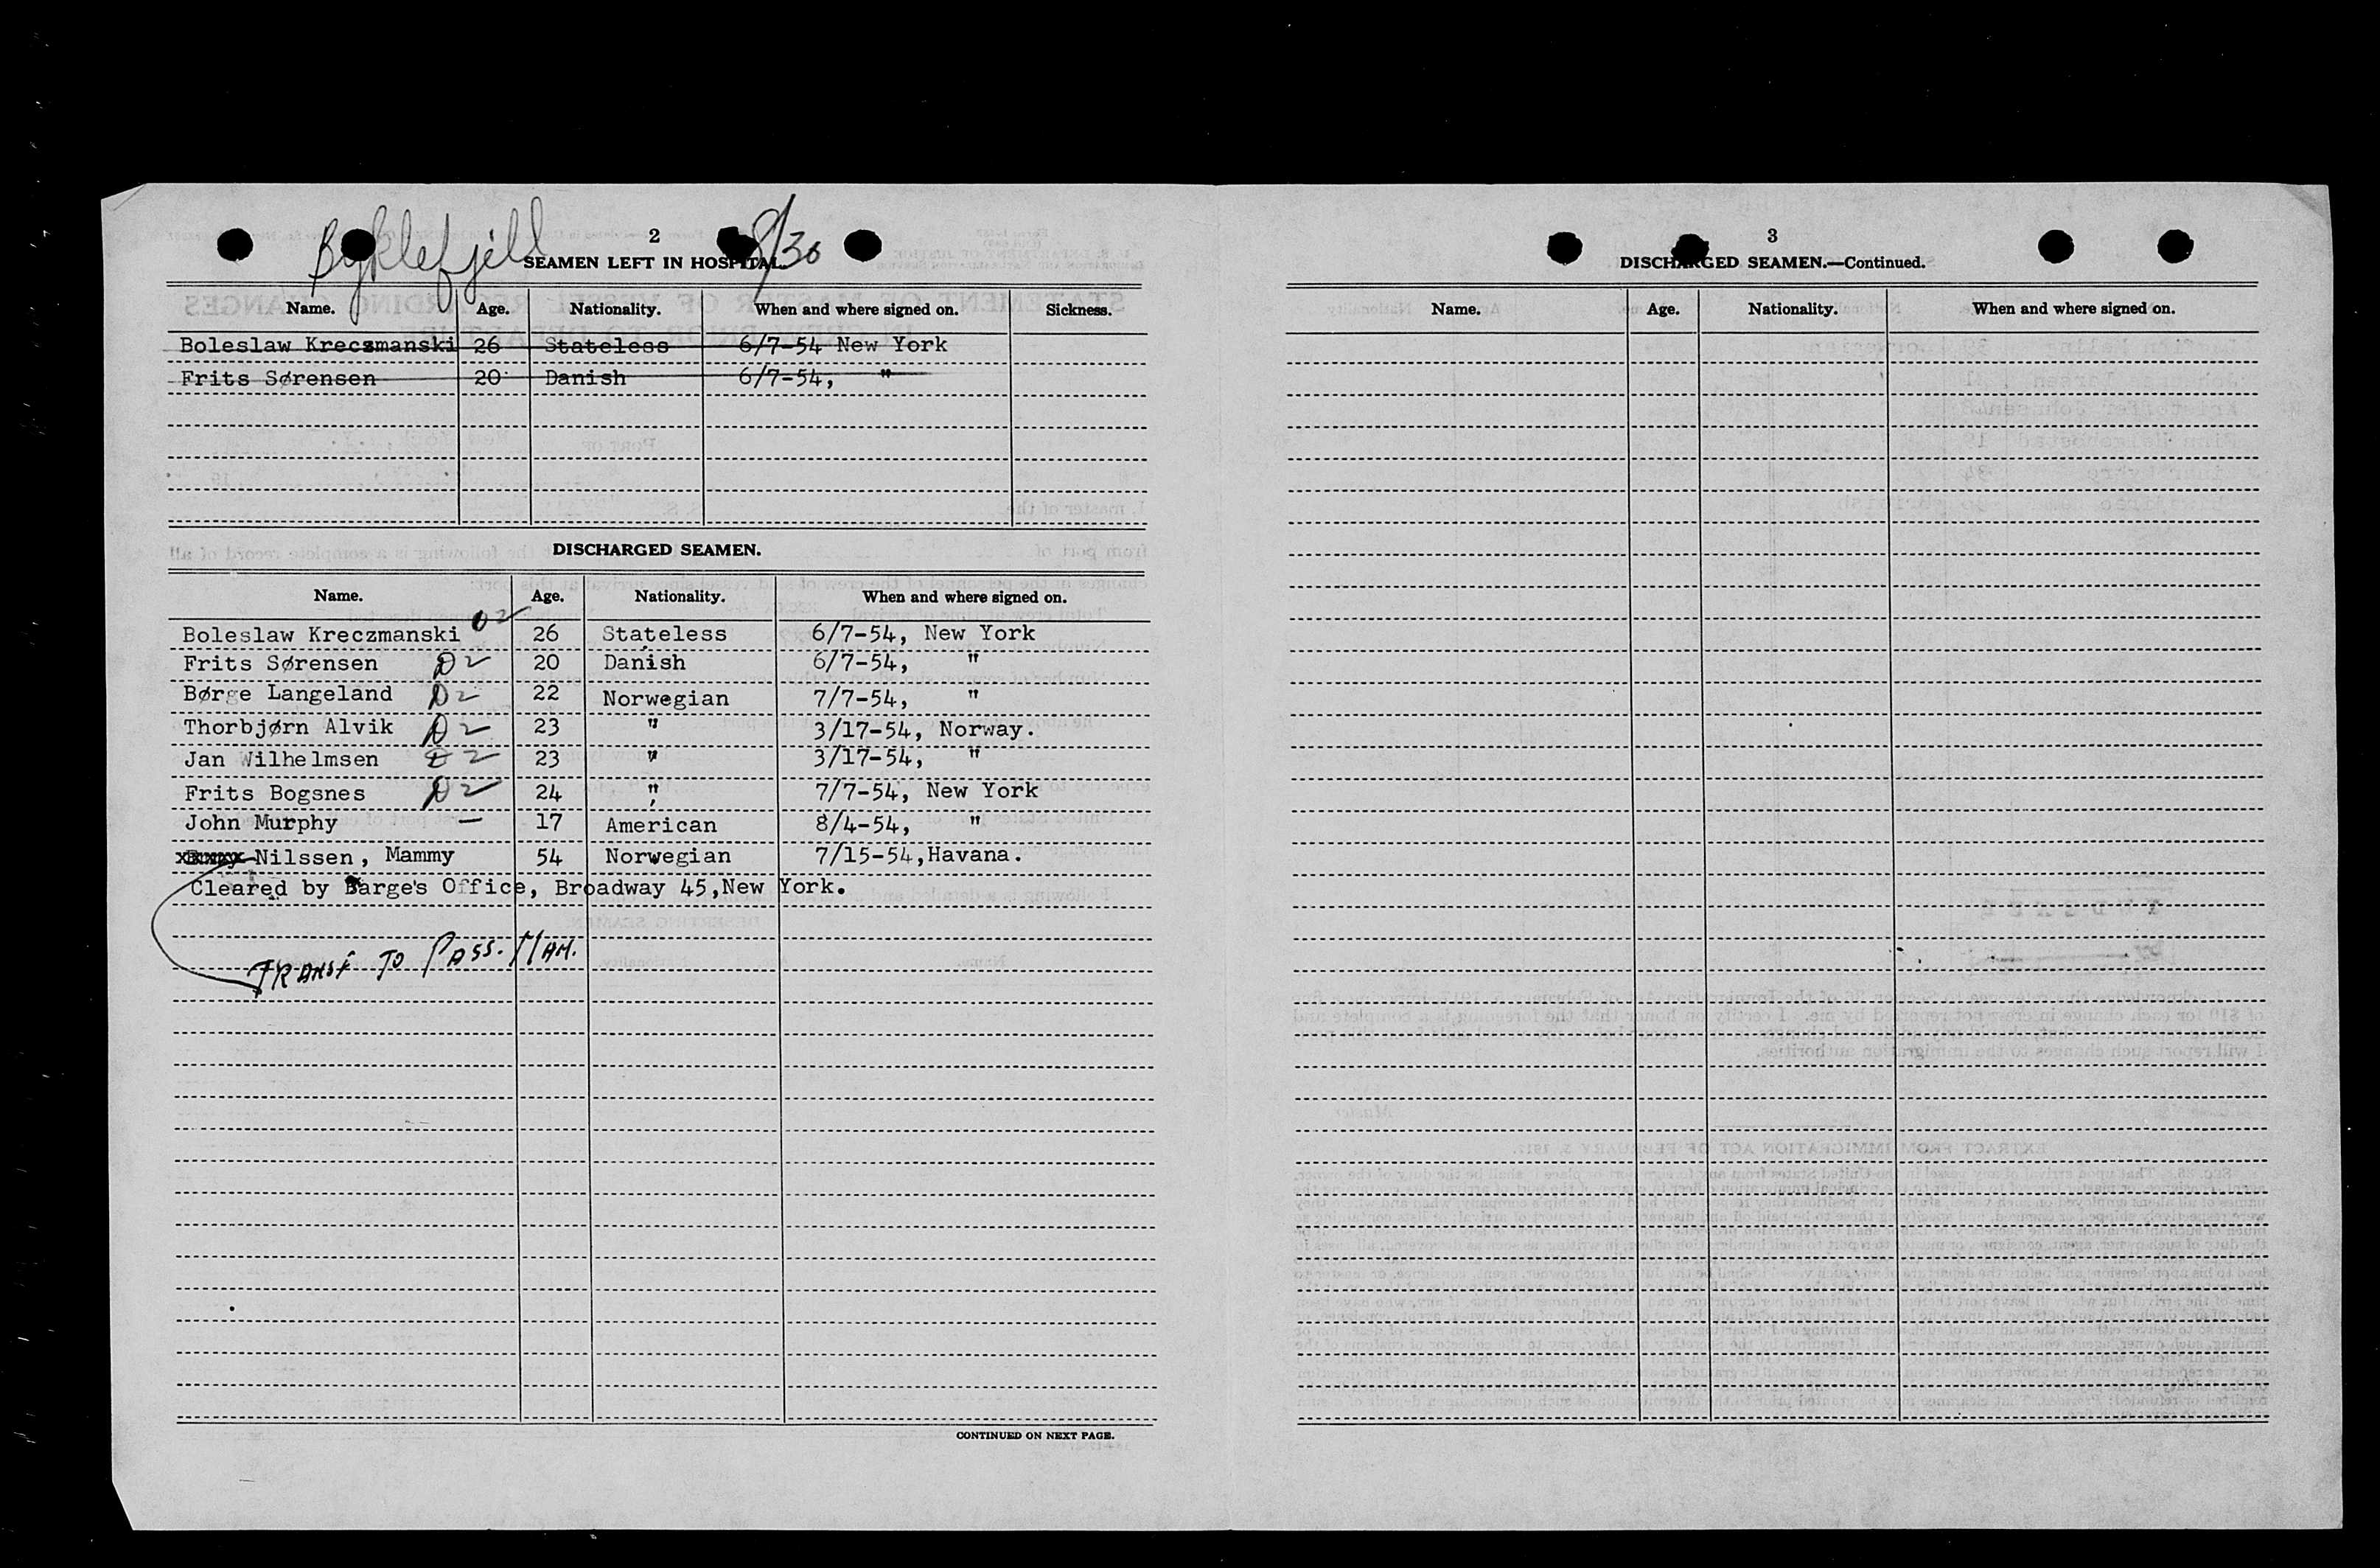 Byklefjell 8/30
2
SEAMEN LEFT IN HOSPITAL.
Name. Age. Nationality. When and where signed on. Sickness.
Boleslaw Kreczmanski 26 Stateless 6/7-54 New York
Frits Sørensen 20 Danish 6/7-54, "
DISCHARGED SEAMEN.
Name. Age. Nationality. When and where signed on.
Boleslaw Kreczmanski D2 26 Stateless 6/7-54, New York
Frits Sørensen D2 20 Danish 6/7-54, "
Børge Langeland D2 22 Norwegian 7/7-54, "
Thorbjørn Alvik D2 23 " 3/17-54, Norway.
Jan Wilhelmsen D2 23 " 3/17-54, "
Frits Bogsnes D2 24 " 7/7-54, New York
John Murphy — 17 American 8/4-54, "
Nilssen, Mammy 54 Norwegian 7/15-54, Havana.
Cleared by Barge's Office, Broadway 45, New York.
TRANSF TO PASS. MAN.
CONTINUED ON NEXT PAGE.
3
DISCHARGED SEAMEN.—Continued.
Name. Age. Nationality. When and where signed on.